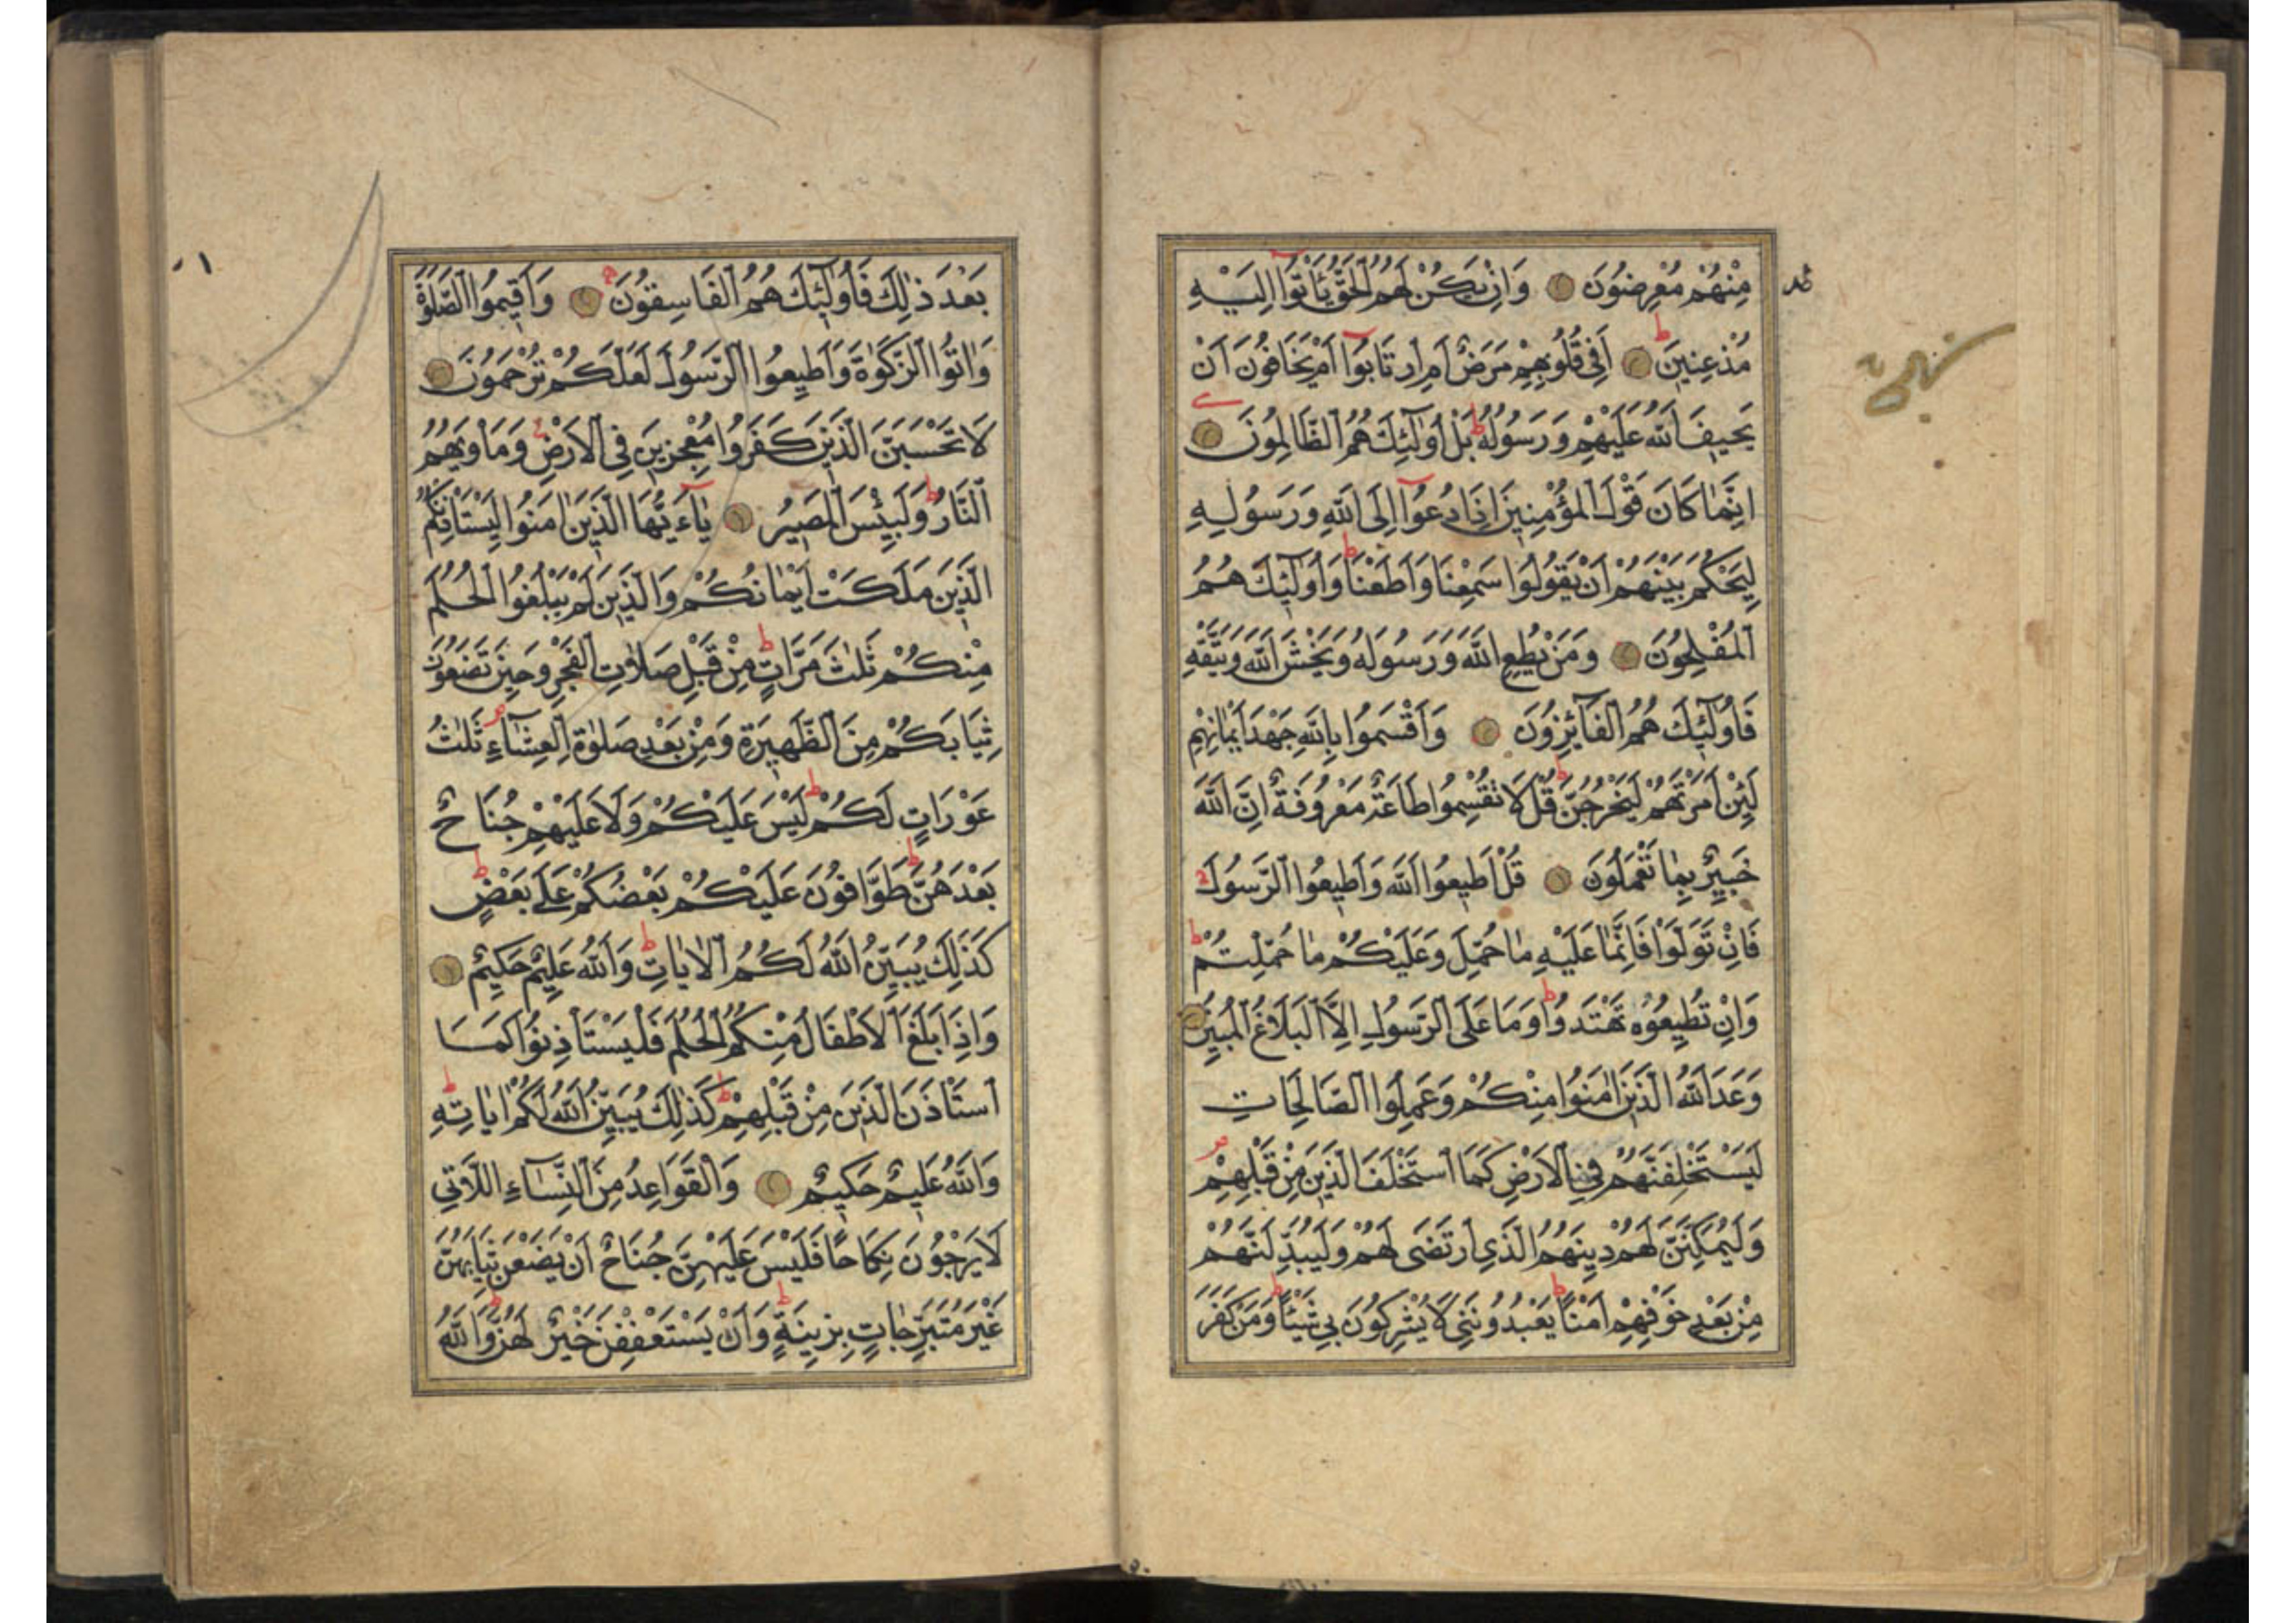 مِنْهُمْ مُعْرِضُونَ وَاِنْ يَكُنْ لَهُمُ الْحَقُّ يَأْتُوا اِلَيْهِ
مُذْعِنِينَ اَفِى قُلُوبِهِمْ مَرَضٌ اَمِ ارْتَابُوا اَمْ يَخَافُونَ اَنْ
يَحِيفَ اللّٰهُ عَلَيْهِمْ وَرَسُولُهُ بَلْ اُولٰٓئِكَ هُمُ الظَّالِمُونَ
اِنَّمَا كَانَ قَوْلَ الْمُؤْمِنِينَ اِذَا دُعُوا اِلَى اللّٰهِ وَرَسُولِهِ
لِيَحْكُمَ بَيْنَهُمْ اَنْ يَقُولُوا سَمِعْنَا وَاَطَعْنَا وَاُولٰٓئِكَ هُمُ
الْمُفْلِحُونَ وَمَنْ يُطِعِ اللّٰهَ وَرَسُولَهُ وَيَخْشَ اللّٰهَ وَيَتَّقْهِ
فَاُولٰٓئِكَ هُمُ الْفَآئِزُونَ وَاَقْسَمُوا بِاللّٰهِ جَهْدَ اَيْمَانِهِمْ
لَئِنْ اَمَرْتَهُمْ لَيَخْرُجُنَّ قُلْ لَا تُقْسِمُوا طَاعَةٌ مَعْرُوفَةٌ اِنَّ اللّٰهَ
خَبِيرٌ بِمَا تَعْمَلُونَ قُلْ اَطِيعُوا اللّٰهَ وَاَطِيعُوا الرَّسُولَ
فَاِنْ تَوَلَّوْا فَاِنَّمَا عَلَيْهِ مَا حُمِّلَ وَعَلَيْكُمْ مَا حُمِّلْتُمْ
وَاِنْ تُطِيعُوهُ تَهْتَدُوا وَمَا عَلَى الرَّسُولِ اِلَّا الْبَلَاغُ الْمُبِينُ
وَعَدَ اللّٰهُ الَّذِينَ اٰمَنُوا مِنْكُمْ وَعَمِلُوا الصَّالِحَاتِ
لَيَسْتَخْلِفَنَّهُمْ فِى الْاَرْضِ كَمَا اسْتَخْلَفَ الَّذِينَ مِنْ قَبْلِهِمْ
وَلَيُمَكِّنَنَّ لَهُمْ دِينَهُمُ الَّذِى ارْتَضَى لَهُمْ وَلَيُبَدِّلَنَّهُمْ
مِنْ بَعْدِ خَوْفِهِمْ اَمْنًا يَعْبُدُونَنِى لَا يُشْرِكُونَ بِى شَيْئًا وَمَنْ كَفَرَ
بَعْدَ ذٰلِكَ فَاُولٰٓئِكَ هُمُ الْفَاسِقُونَ وَاَقِيمُوا الصَّلٰوةَ
وَاٰتُوا الزَّكٰوةَ وَاَطِيعُوا الرَّسُولَ لَعَلَّكُمْ تُرْحَمُونَ
لَا تَحْسَبَنَّ الَّذِينَ كَفَرُوا مُعْجِزِينَ فِى الْاَرْضِ وَمَاْوٰيهُمُ
النَّارُ وَلَبِئْسَ الْمَصِيرُ يَٓا ءَيُّهَا الَّذِينَ اٰمَنُوا لِيَسْتَاْذِنْكُمُ
الَّذِينَ مَلَكَتْ اَيْمَانُكُمْ وَالَّذِينَ لَمْ يَبْلُغُوا الْحُلُمَ
مِنْكُمْ ثَلٰثَ مَرَّاتٍ مِنْ قَبْلِ صَلٰوةِ الْفَجْرِ وَحِينَ تَضَعُونَ
ثِيَابَكُمْ مِنَ الظَّهِيرَةِ وَمِنْ بَعْدِ صَلٰوةِ الْعِشَٓاءِ ثَلٰثُ
عَوْرَاتٍ لَكُمْ لَيْسَ عَلَيْكُمْ وَلَا عَلَيْهِمْ جُنَاحٌ
بَعْدَهُنَّ طَوَّافُونَ عَلَيْكُمْ بَعْضُكُمْ عَلٰى بَعْضٍ
كَذٰلِكَ يُبَيِّنُ اللّٰهُ لَكُمُ الْاٰيَاتِ وَاللّٰهُ عَلِيمٌ حَكِيمٌ
وَاِذَا بَلَغَ الْاَطْفَالُ مِنْكُمُ الْحُلُمَ فَلْيَسْتَاْذِنُوا كَمَا
اسْتَاْذَنَ الَّذِينَ مِنْ قَبْلِهِمْ كَذٰلِكَ يُبَيِّنُ اللّٰهُ لَكُمْ اٰيَاتِهِ
وَاللّٰهُ عَلِيمٌ حَكِيمٌ وَالْقَوَاعِدُ مِنَ النِّسَٓاءِ اللَّاتِى
لَا يَرْجُونَ نِكَاحًا فَلَيْسَ عَلَيْهِنَّ جُنَاحٌ اَنْ يَضَعْنَ ثِيَابَهُنَّ
غَيْرَ مُتَبَرِّجَاتٍ بِزِينَةٍ وَاَنْ يَسْتَعْفِفْنَ خَيْرٌ لَهُنَّ وَاللّٰهُ